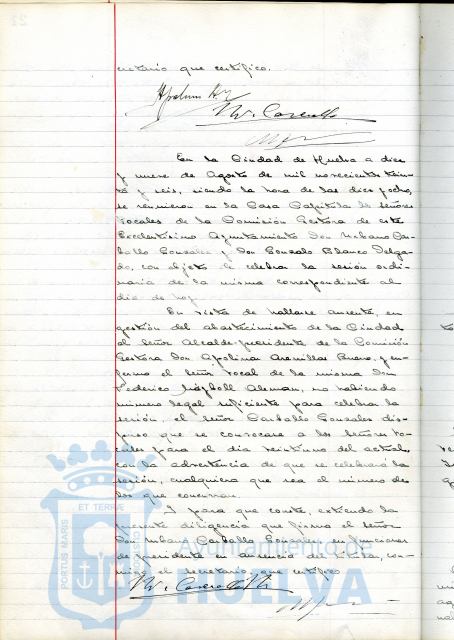 cretario que certifico.
En la Ciudad de Huelva a diez
y nueve de Agosto de mil novecientos trein-
ta y seis, siendo la hora de las diez y ocho,
se reunieron en la Casa Capitular los señores
Vocales de la Comisión Gestora de este
Excelentísimo Ayuntamiento Don Urbano Car-
ballo Gonzalez y Don Gonzalo Blanco Delga-
do, con objeto de celebrar la sesión ordi-
naria de la misma correspondiente al
día de hoy.
En vista de hallarse ausente, en
gestión del abastecimiento de la Ciudad
el Señor Alcalde-presidente de la Comisión
Gestora Don Apolinar Arenillas Bueno, y en-
fermo el señor Vocal de la misma Don
Federico Alemán, no habiendo
número legal suficiente para celebrar la
sesión, el Señor Carballo Gonzalez dis-
puso que se convocase a los Señores Vo-
cales para el día veintiuno del actual,
con la advertencia de que se celebrará la
sesión, cualquiera que sea el número de
los que concurran.
Y para que conste, extiendo la
presente diligencia que firma el señor
Don Urbano Carballo Gonzalez en funciones
de presidente en ausencia del con-
migo el secretario, que certifico
ET TERRÆ
PORTUS MARIS
CUSTODIA
Ayuntamiento de
HUELVA